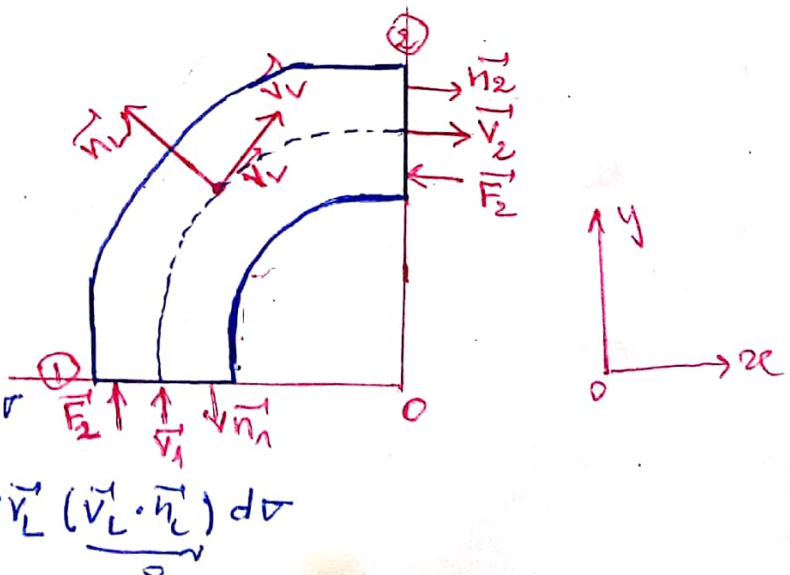 ②
n⃗2
V⃗2
F⃗2
n⃗L
V⃗v
V⃗v
y
x
O
①
F⃗2
V⃗1
n⃗1
O
V⃗L (V⃗L · n⃗L) dσ